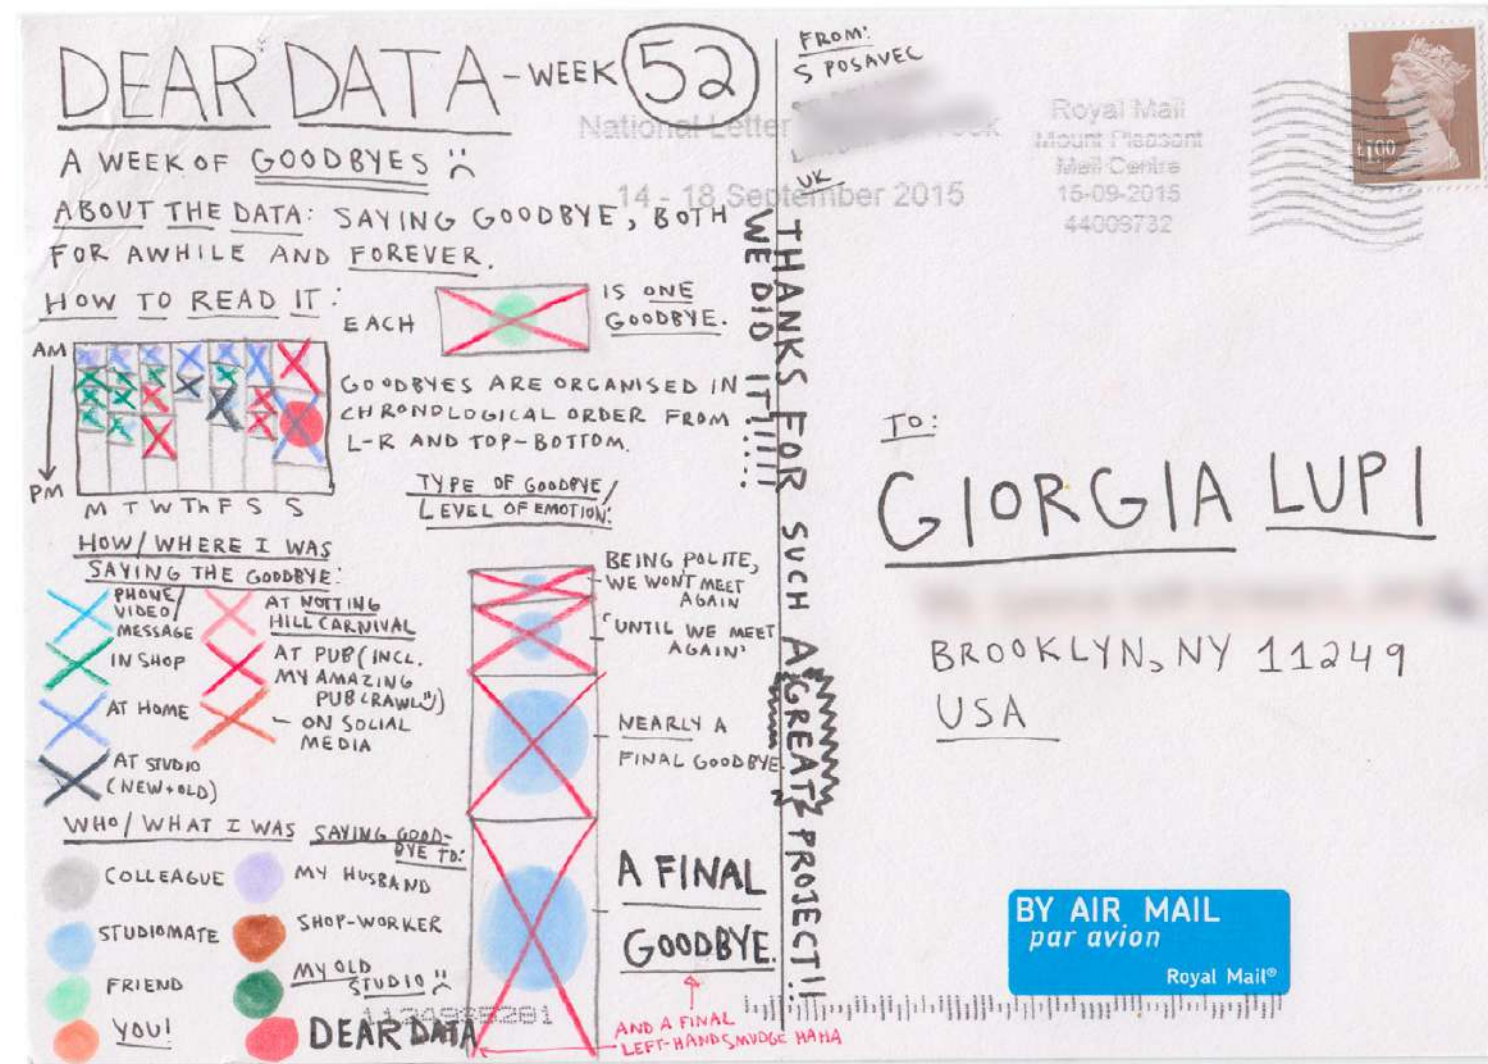 DEAR DATA - WEEK 52
A WEEK OF GOODBYES
ABOUT THE DATA: SAYING GOODBYE, BOTH
FOR AWHILE AND FOREVER.
HOW TO READ IT:
EACH
IS ONE
GOODBYE.
AM
PM
M T W Th F S S
GOODBYES ARE ORGANISED IN
CHRONOLOGICAL ORDER FROM
L-R AND TOP-BOTTOM.
TYPE OF GOODBYE/
LEVEL OF EMOTION:
BEING POLITE,
WE WON'T MEET
AGAIN
'UNTIL WE MEET
AGAIN'
NEARLY A
FINAL GOODBYE.
A FINAL
GOODBYE.
AND A FINAL
LEFT-HAND SMUDGE HAHA
HOW/WHERE I WAS
SAYING THE GOODBYE:
PHONE/
VIDEO/
MESSAGE
IN SHOP
AT HOME
AT STUDIO
(NEW+OLD)
AT NOTTING
HILL CARNIVAL
AT PUB (INCL.
MY AMAZING
PUB CRAWL)
ON SOCIAL
MEDIA
WHO/WHAT I WAS SAYING GOOD-
BYE TO:
COLLEAGUE
STUDIOMATE
FRIEND
YOU!
MY HUSBAND
SHOP-WORKER
MY OLD
STUDIO
DEAR DATA
THANKS FOR SUCH A GREAT PROJECT!!
WE DID IT!!!!!
FROM:
S POSAVEC
UK
National Letter
14 - 18 September 2015
Royal Mail
Mount Pleasant
Mail Centre
15-09-2015
44009732
£1.00
TO:
GIORGIA LUPI
BROOKLYN, NY 11249
USA
BY AIR MAIL
par avion
Royal Mail®